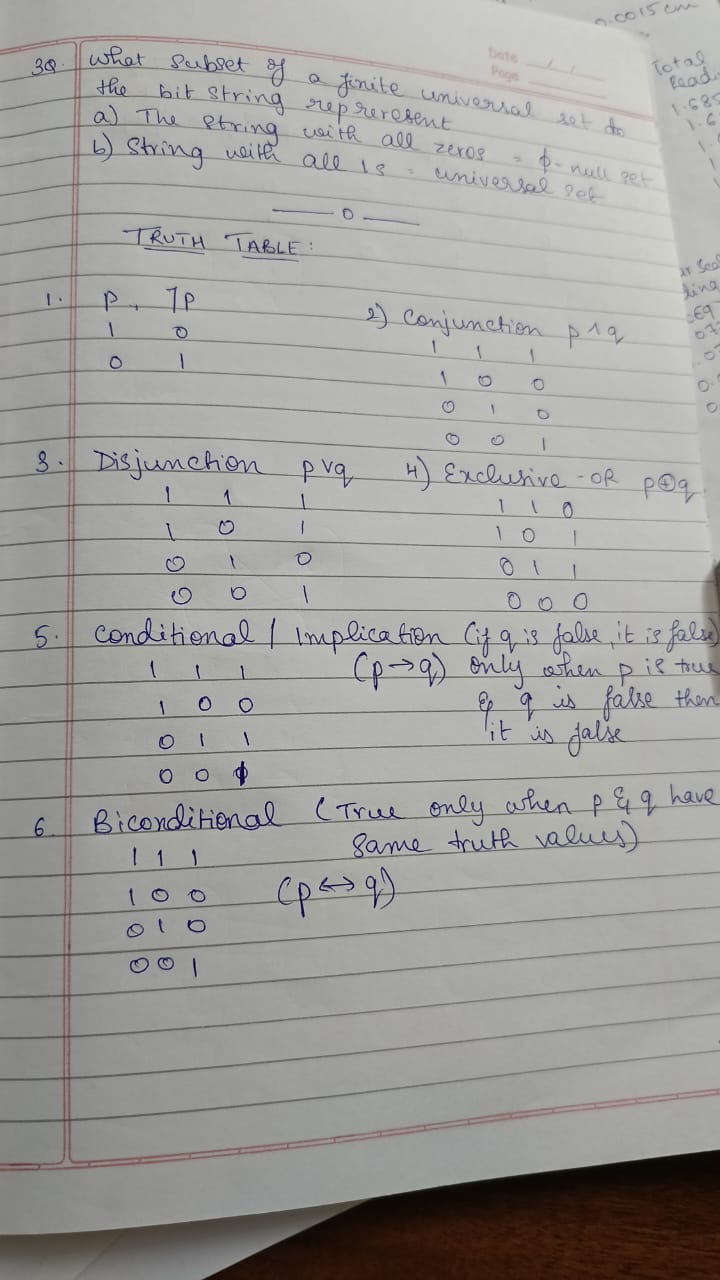 0.0015cm
Date / /
Page
Total
Readi
1.685
1.6
3Q. What subset of a finite universal set do
the bit string repreresent
a) The string with all zeros = ϕ - null set
b) String with all 1s = universal set
— 0 —
TRUTH TABLE:
1. P, ¬P
1 0
0 1
2) Conjunction p^q
1 1 1
1 0 0
0 1 0
0 0 1
3. Disjunction p∨q
1 1 1
1 0 1
0 1 0
0 0 1
4) Exclusive-OR p⊕q
1 1 0
1 0 1
0 1 1
0 0 0
5. Conditional / Implication (if q is false, it is false)
(p→q) only when p is true
& q is false then
it is false
1 1 1
1 0 0
0 1 1
0 0 1
6. Biconditional (True only when p & q have
same truth values)
1 1 1
1 0 0 (p↔q)
0 1 0
0 0 1